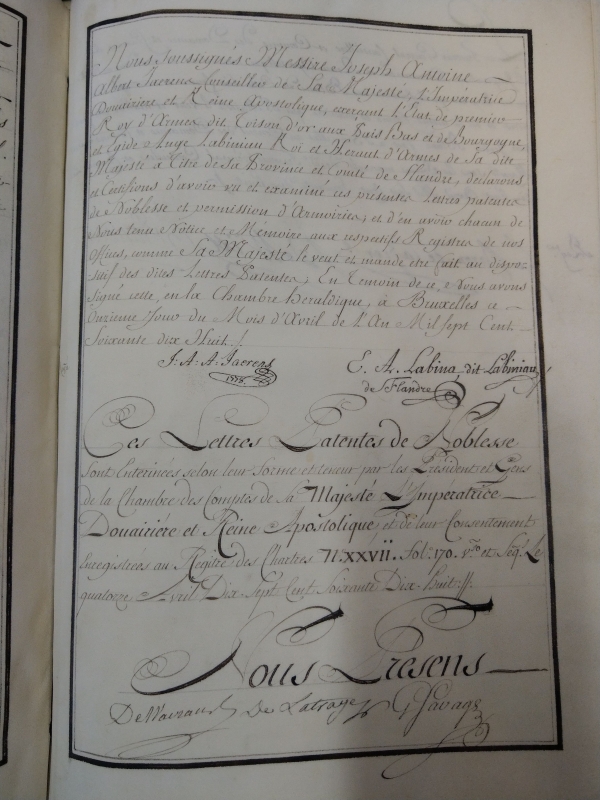 Nous soussignés Messire Joseph Antoine
Albert Jaerens Conseiller de Sa Majesté, L'Impératrice
Douairière et Reine Apostolique, exerçant L'Etat de premier
Roy d'Armes dit Toison d'or aux Païs Bas et de Bourgogne,
et Egide Ange Labiniau Roi et Heraut d'Armes de Sa dite
Majesté à Titre de sa Province et Comté de Flandre, declarons
et Certifions d'avoir vu et examiné ces présentes Lettres patentes
de Noblesse et permission d'Armoiries, et d'en avoir chacun de
Nous tenu Notice et Memoire aux respectifs Registres de nos
Offices, comme Sa Majesté le veut et mande etre fait au dispo=
sitif des dites Lettres Patentes, En Temoin de ce Nous avons
signé cette, en la Chambre Heraldique, à Bruxelles ce
Onzieme jour du Mois d'Avril de l'An Mil sept Cent
Soixante dix Huit /.
J: A: A: Jaerens
1778.
E. A. Labina dit Labiniau
de Flandre
Ces Lettres Patentes de Noblesse
sont Enterinées selon leur forme et teneur par les Président et Gens
de la Chambre des Comptes de sa Majesté L'Impératrice
Douairière et Reine Apostolique et de leur Consentement
Enregistrées au Regitre des Chartres N. XXVII. Fol: 170. v.so et Seq. Le
quatorze Avril Dix-Sept Cent Soixante Dix-Huit //.
Nous Presens
De Latraye G. Savage